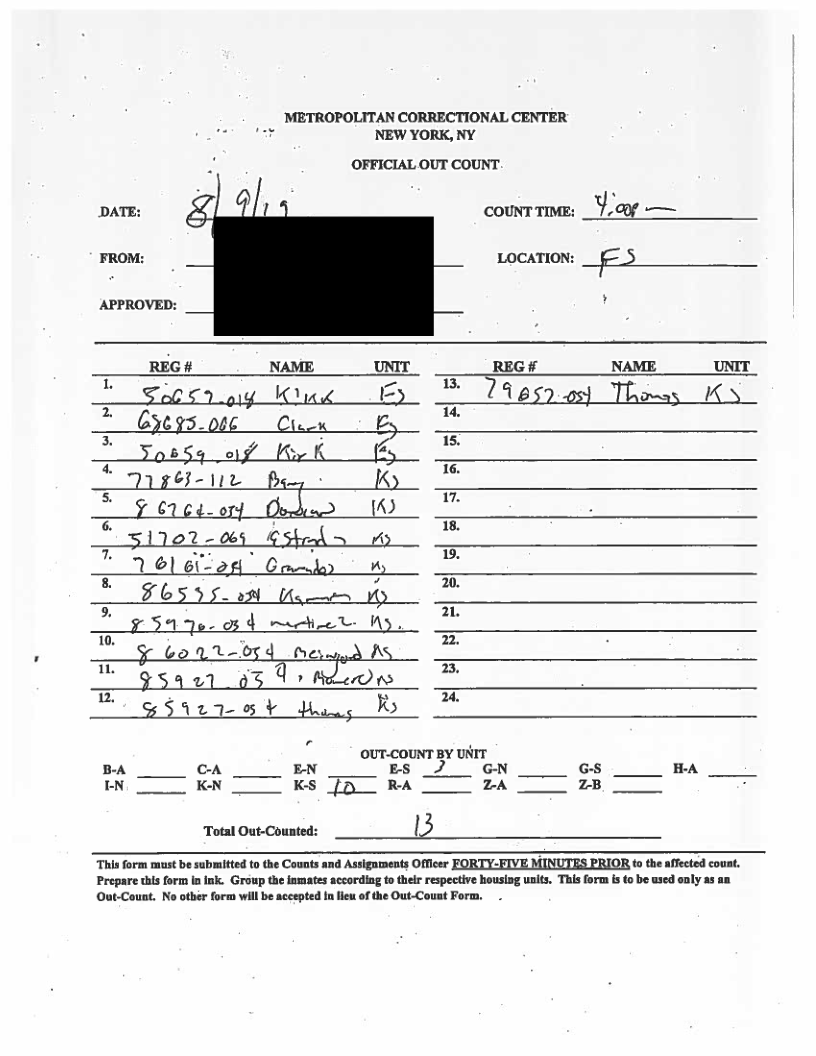 METROPOLITAN CORRECTIONAL CENTER
NEW YORK, NY
OFFICIAL OUT COUNT
DATE: 8/9/19 COUNT TIME: 4:00P
FROM: LOCATION: FS
APPROVED:
REG # NAME UNIT REG # NAME UNIT
1. 50657-018 Kirk ES 13. 79652-054 Thomas KS
2. 68685-006 Clark ES 14.
3. 50659-018 Kirk ES 15.
4. 77863-112 KS 16.
5. 86764-054 KS 17.
6. 51702-069 Estrada KS 18.
7. 76161-054 Granados KS 19.
8. 86535-054 KS 20.
9. 85976-054 martinez KS. 21.
10. 86022-054 KS 22.
11. 85927 054 KS 23.
12. 85927-054 thomas KS 24.
OUT-COUNT BY UNIT
B-A C-A E-N E-S 3 G-N G-S H-A
I-N K-N K-S 10 R-A Z-A Z-B
Total Out-Counted: 13
This form must be submitted to the Counts and Assignments Officer FORTY-FIVE MINUTES PRIOR to the affected count.
Prepare this form in ink. Group the inmates according to their respective housing units. This form is to be used only as an
Out-Count. No other form will be accepted in lieu of the Out-Count Form.